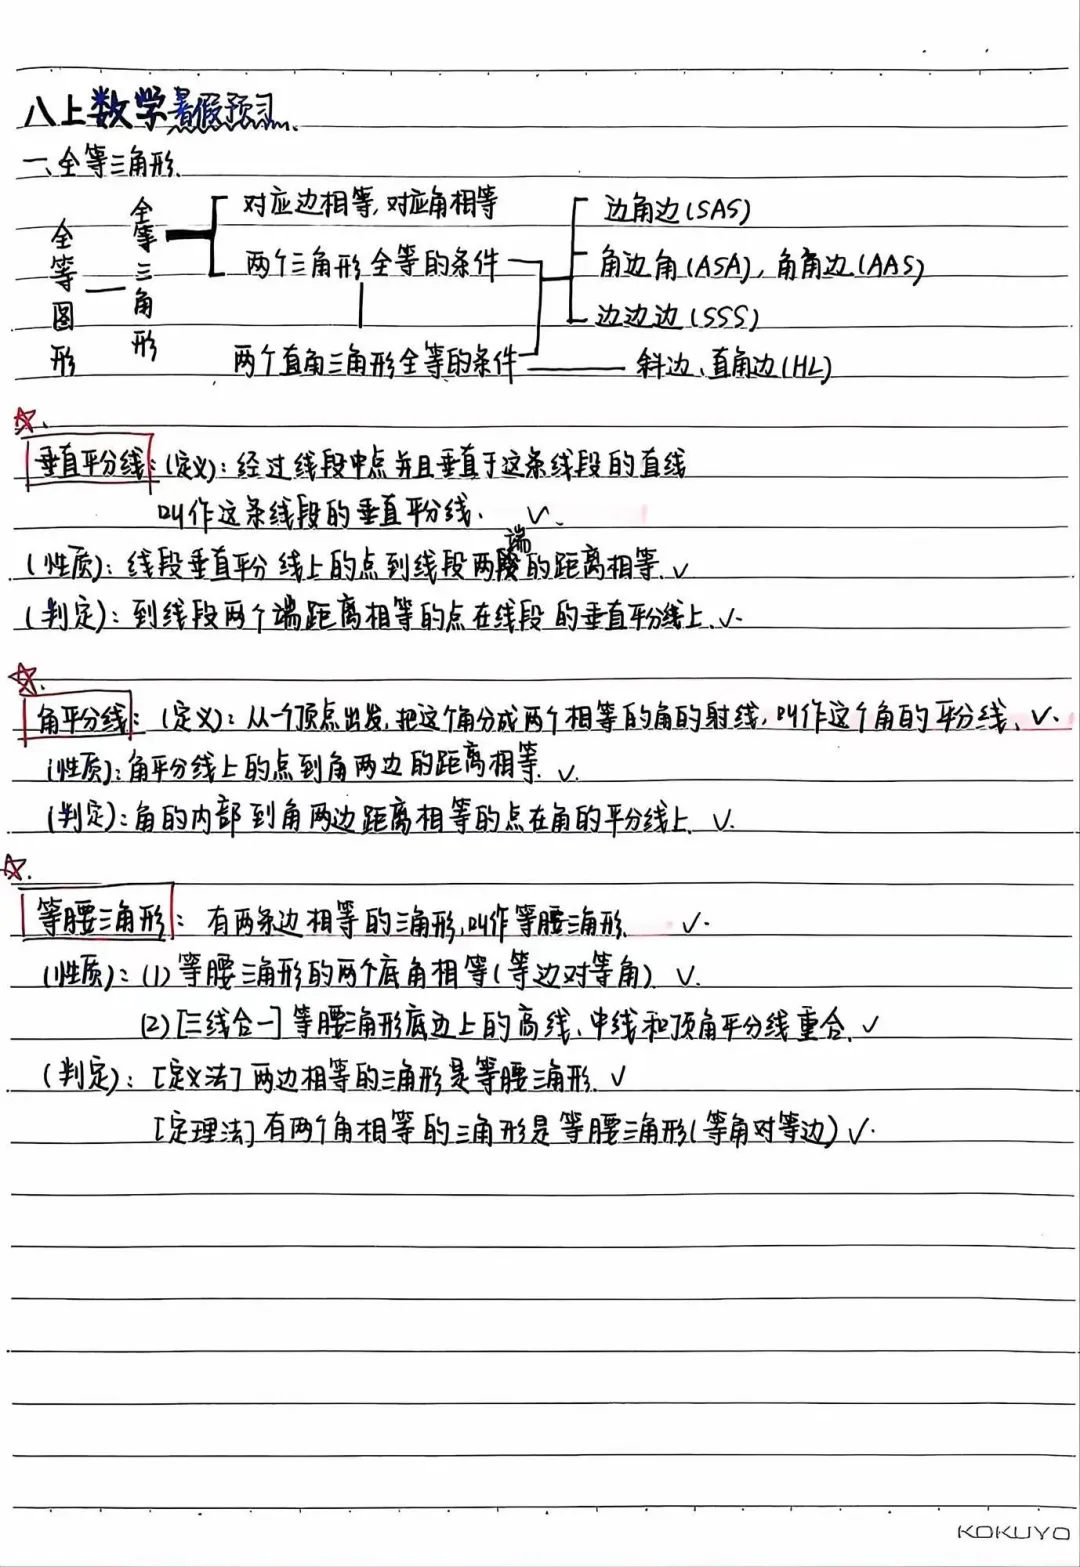 八上数学暑假预习
一、全等三角形.
全等图形
全等三角形
对应边相等,对应角相等
两个三角形全等的条件
两个直角三角形全等的条件
边角边(SAS)
角边角(ASA),角角边(AAS)
边边边(SSS)
斜边、直角边(HL)
垂直平分线:(定义):经过线段中点并且垂直于这条线段的直线
叫作这条线段的垂直平分线.
(性质):线段垂直平分线上的点到线段两端的距离相等.
(判定):到线段两个端距离相等的点在线段的垂直平分线上.
角平分线:(定义):从一个顶点出发,把这个角分成两个相等的角的射线,叫作这个角的平分线.
(性质):角平分线上的点到角两边的距离相等.
(判定):角的内部到角两边距离相等的点在角的平分线上.
等腰三角形:有两条边相等的三角形,叫作等腰三角形.
(性质):(1)等腰三角形的两个底角相等(等边对等角)
(2)[三线合一]等腰三角形底边上的高线、中线和顶角平分线重合.
(判定):[定义法]两边相等的三角形是等腰三角形.
[定理法]有两个角相等的三角形是等腰三角形(等角对等边)
KOKUYO